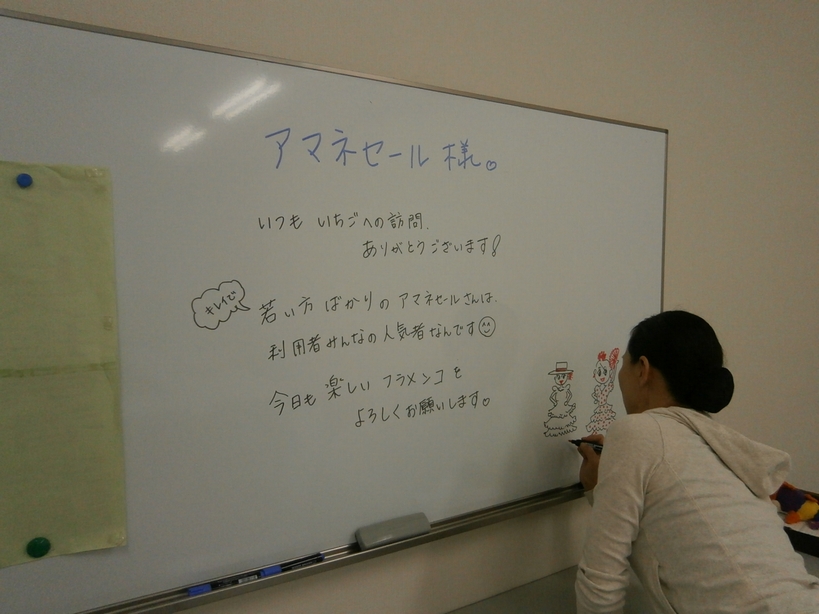 アマネセール様。
いつも いちごへの訪問、
ありがとうございます!
キレイで
若い方ばかりの アマネセールさんは、
利用者みんなの人気者なんです
今日も 楽しい フラメンコを
よろしくお願いします。